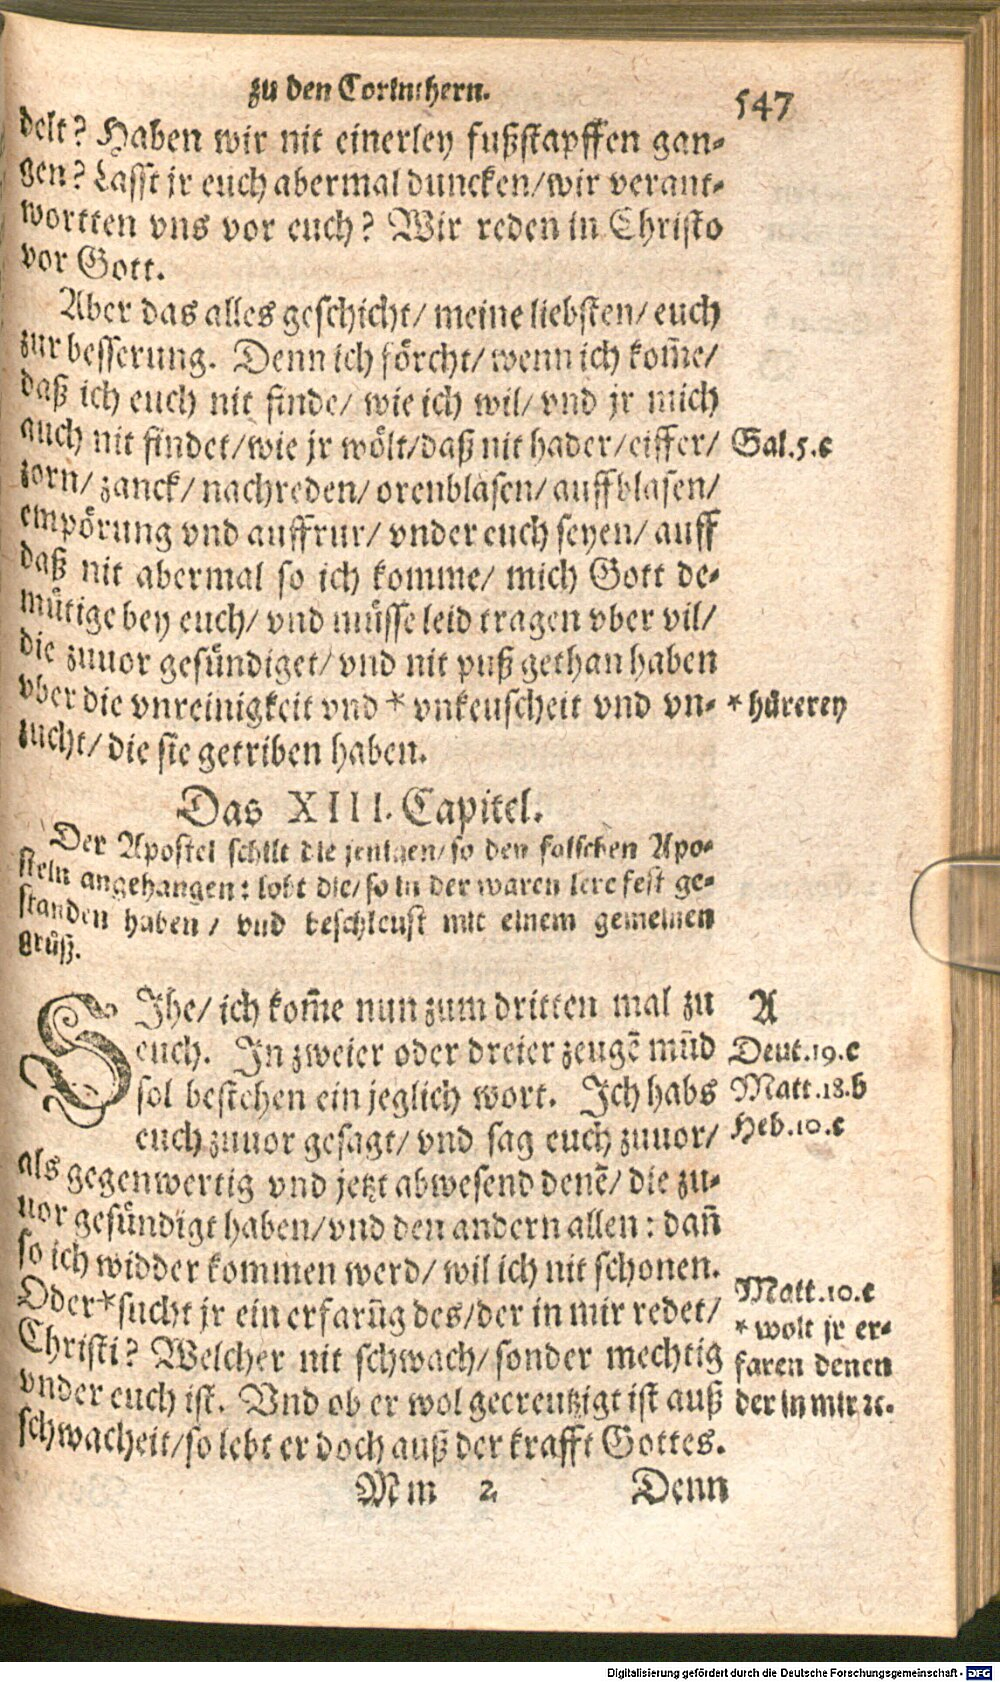 zu den Corinthern.
547
delt? Haben wir nit einerley fußstapffen gan-
gen? Lasst jr euch abermal duncken/wir verant-
wortten vns vor euch? Wir reden in Christo
vor Gott.
Aber das alles geschicht/ meine liebsten/ euch
zur besserung. Denn ich förcht/ wenn ich kom̃e/
daß ich euch nit finde/ wie ich wil/ vnd jr mich
auch nit findet/wie jr wölt/daß nit hader/eiffer/
Gal.5.c
zorn/ zanck/ nachreden/ orenblasen/ auffblasen/
empörung vnd auffrur/ vnder euch seyen/ auff
daß nit abermal so ich komme/ mich Gott de-
mütige bey euch/ vnd müsse leid tragen vber vil/
die zuuor gesündiget/ vnd nit puß gethan haben
vber die vnreinigkeit vnd * vnkeuscheit vnd vn-
* hürerey
zucht/ die sie getriben haben.
Das XIII. Capitel.
Der Apostel schilt die jenigen/ so den falschen Apo-
steln angehangen: lobt die/ so in der waren lere fest ge-
standen haben/ vnd beschleust mit einem gemeinen
grüß.
SIhe/ ich kom̃e nun zum dritten mal zu
A
euch. In zweier oder dreier zeugẽ mũd
Deut.19.c
sol bestehen ein jeglich wort. Ich habs
Matt.18.b
euch zuuor gesagt/ vnd sag euch zuuor/
Heb.10.c
als gegenwertig vnd jetzt abwesend denẽ/ die zu-
uor gesündigt haben/vnd den andern allen: dañ
so ich widder kommen werd/ wil ich nit schonen.
Oder*sucht jr ein erfarũg des/der in mir redet/
Matt.10.c
* wolt jr er-
Christi? Welcher nit schwach/ sonder mechtig
faren denen
vnder euch ist. Vnd ob er wol gecreutzigt ist auß
der in mir ꝛc.
schwacheit/so lebt er doch auß der krafft Gottes.
Mm 2
Denn
Digitalisierung gefördert durch die Deutsche Forschungsgemeinschaft - DFG